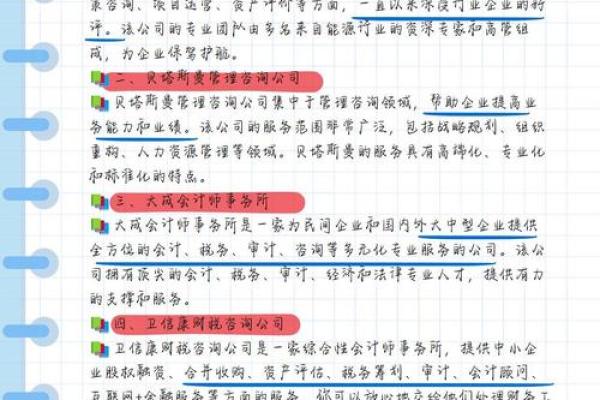 景咨询、项目运营、资产评价等方面，一直以来深度行业企业的好
评。该公司的专业团队由多名来自能源行业的资深专家和高管组
成，为企业保驾护航。
二、贝塔斯曼管理咨询公司
贝塔斯曼管理咨询公司集中于管理咨询领域，帮助企业提高业
务能力和业绩。该公司的服务范围非常广泛，包括战略规划、组织
重构、人力资源管理等领域。贝塔斯曼的服务具有高端化、专业化
和标准化的特点。
三、大成会计师事务所
大成会计师事务所是一家为民间企业和国内外大中型企业提供
全方位的会计、税务、审计、咨询等多元化专业服务的公司。该公
司拥有顶尖的会计、税务、审计、经济和法律专业人才，提供有力
的支撑和服务。
四、卫信康财税咨询公司
卫信康财税咨询公司是一家综合性会计师事务所，提供中小企
业股权融资、合并收购、资产评估、税务筹划、审计、会计顾问、
互联网+金融服务等方面的服务，你可以放心地交给他们处理财务工